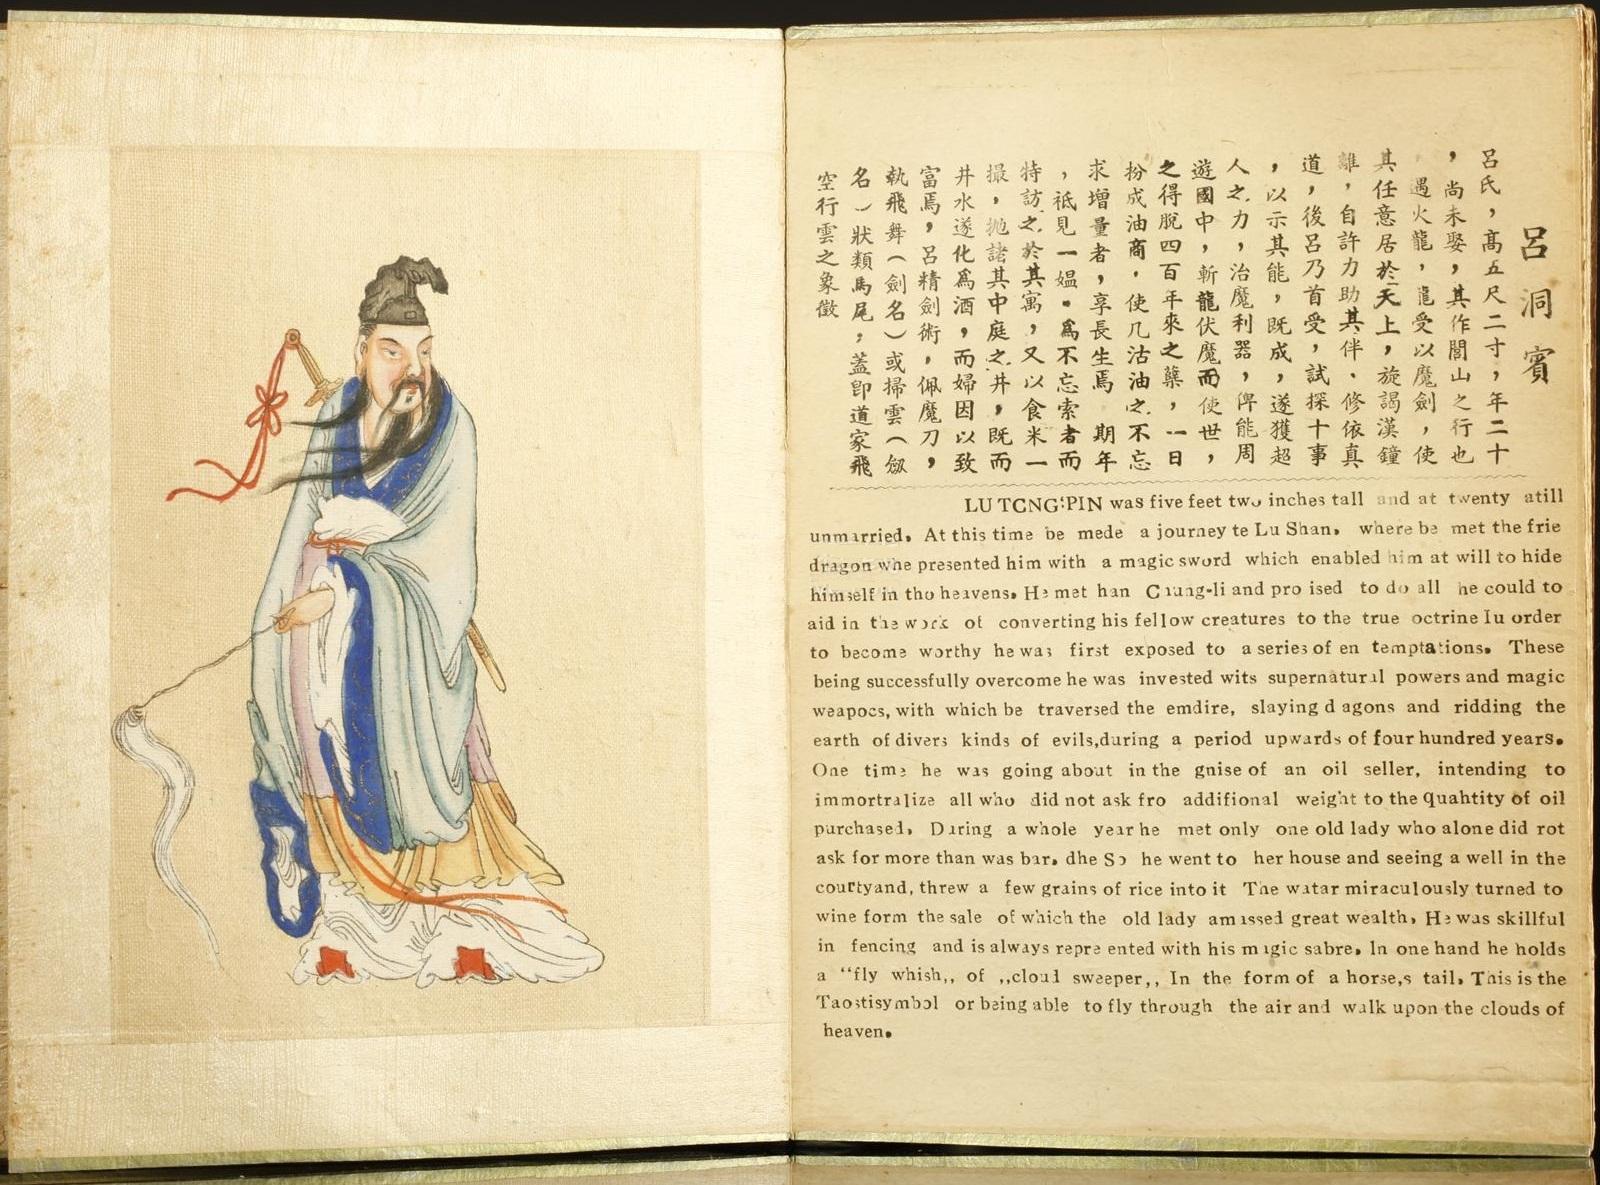 呂洞賓
呂氏，高五尺二寸，年二十
，尚未娶，其作閭山之行也
，遇火龍，龍受以魔劍，使
其任意居於天上，旋謁漢鐘
離，自許力助其伴．修依真
道，後呂乃首受，試探十事
，以示其能，既成，遂獲超
人之力，治魔利器，俾能周
遊國中，斬龍伏魔而使世，
之得脫四百年來之孽，一日
扮成油商．使凡沽油之不忘
求增量者，享長生焉　期年
，祗見一媼．為不忘索者而
特訪之於其寓，又以食米一
撮，拋諸其中庭之井，既而
井水遂化為酒，而婦因以致
富焉，呂精劍術，佩魔刀，
執飛舞（劍名）或掃雲（劔
名）狀類馬尾，蓋卽道家飛
空行雲之象徵
LU TCNG:PIN was five feet two inches tall and at twenty atill
unmarried. At this time be mede a journey te Lu Shan. where be met the frie
dragon whe presented him with a magic sword which enabled him at will to hide
himself in tho heavens. He met han C iang-li and pro ised to do all he could to
aid in the work ot converting his fellow creatures to the true octrine Iu order
to become worthy he was first exposed to a series of en temptations. These
being successfully overcome he was invested wits supernatural powers and magic
weapocs, with which be traversed the emdire, slaying d agons and ridding the
earth of divers kinds of evils,during a period upwards of four hundred years.
One time he was going about in the gnise of an oil seller, intending to
immortralize all who did not ask fro addifional weight to the quahtity of oil
purchased, During a whole year he met only one old lady who alone did rot
ask for more than was bar. dhe So he went to her house and seeing a well in the
courtyand, threw a few grains of rice into it The watar miraculously turned to
wine form the sale of which the old lady amassed great wealth, He was skillful
in fencing and is always repre ented with his magic sabre. In one hand he holds
a “fly whish,, of ,,cloud sweeper,, In the form of a horse,s tail. This is the
Taostisymbol or being able to fly through the air and walk upon the clouds of
heaven.